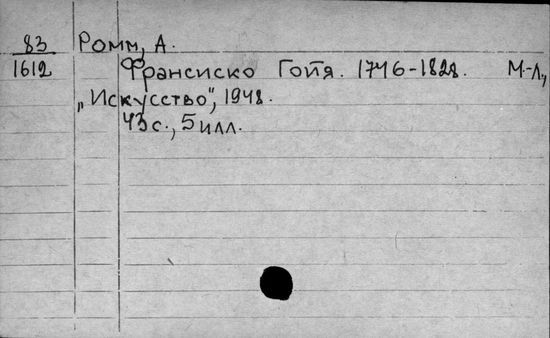 83 Ромм, А.
1612 Франсиско Гойя. 1746-1828. М.-Л.,
„Искусство", 1948.
43 с., 5 илл.